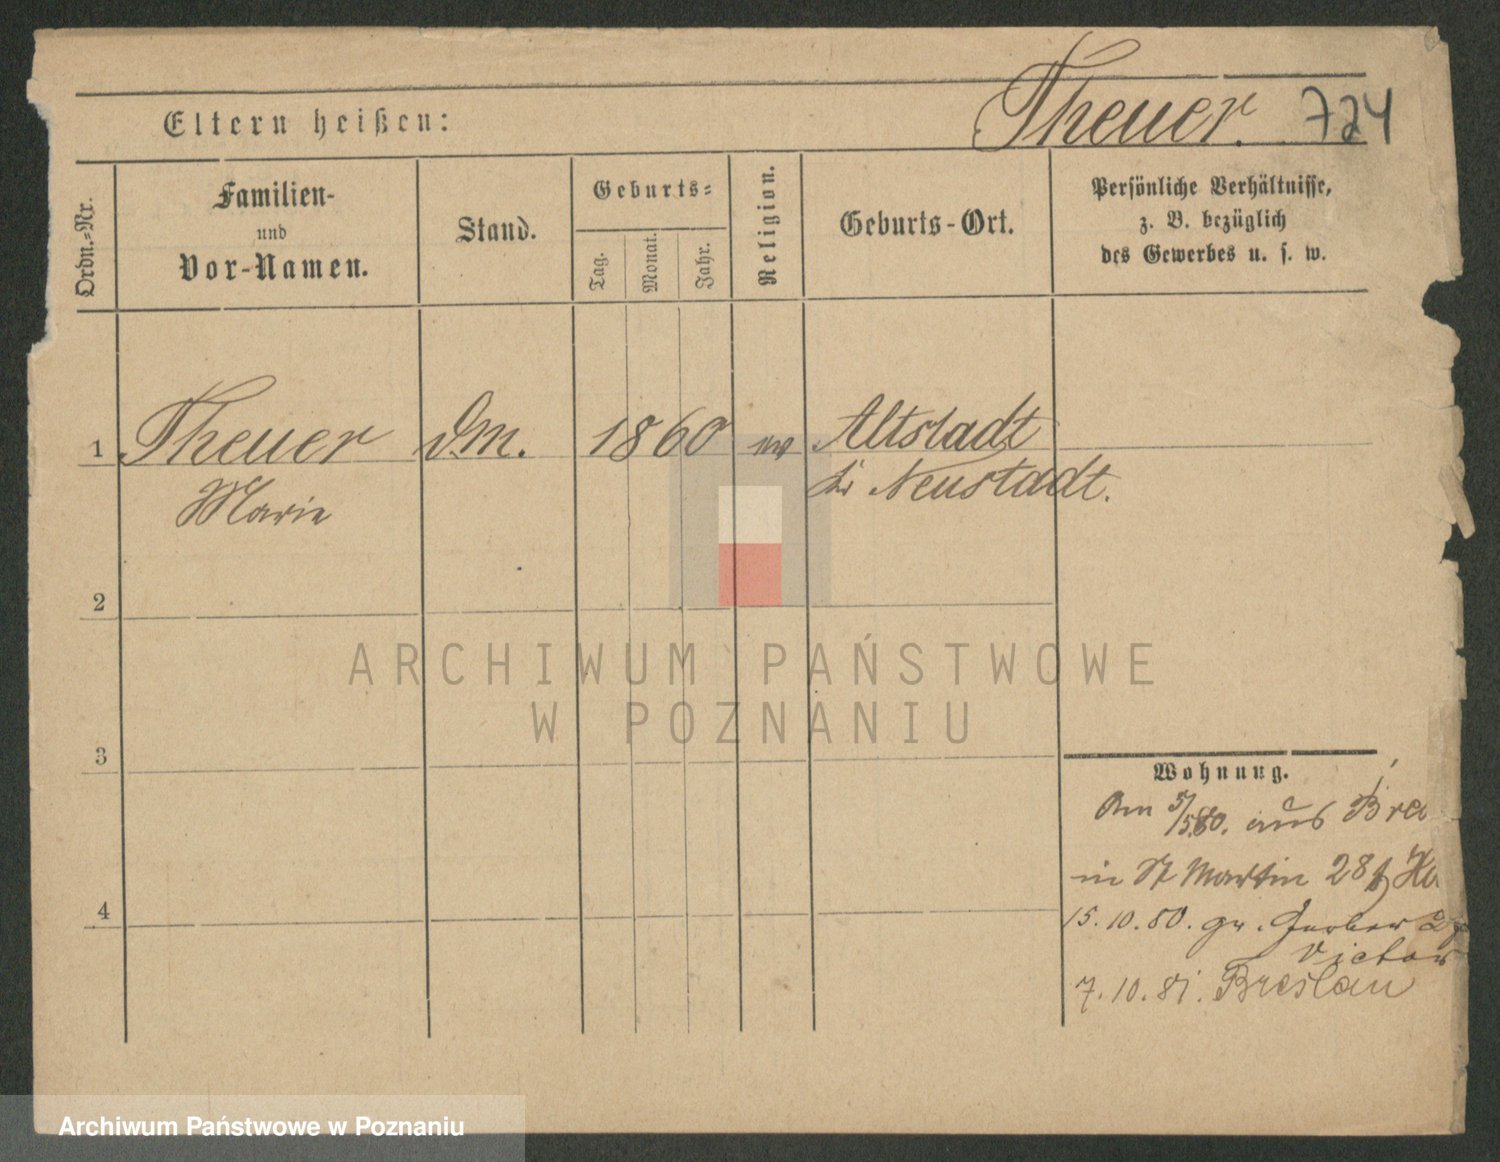 Eltern heißen:
Theuer. 724
Ordn.=Nr.
Familien-
und
Vor-Namen.
Stand.
Geburts=
Tag.
Monat.
Jahr.
Religion.
Geburts-Ort.
Persönliche Verhältnisse,
z. B. bezüglich
des Gewerbes u. s. w.
1 Theuer Dm. 1860 Altstadt
Marie Neustadt.
2
3
4
ARCHIWUM PAŃSTWOWE
W POZNANIU
Wohnung.
Am 5/5.80. aus Bre
in St Martin 28
15.10.80.
Victor
7.10.81. Breslau
Archiwum Państwowe w Poznaniu